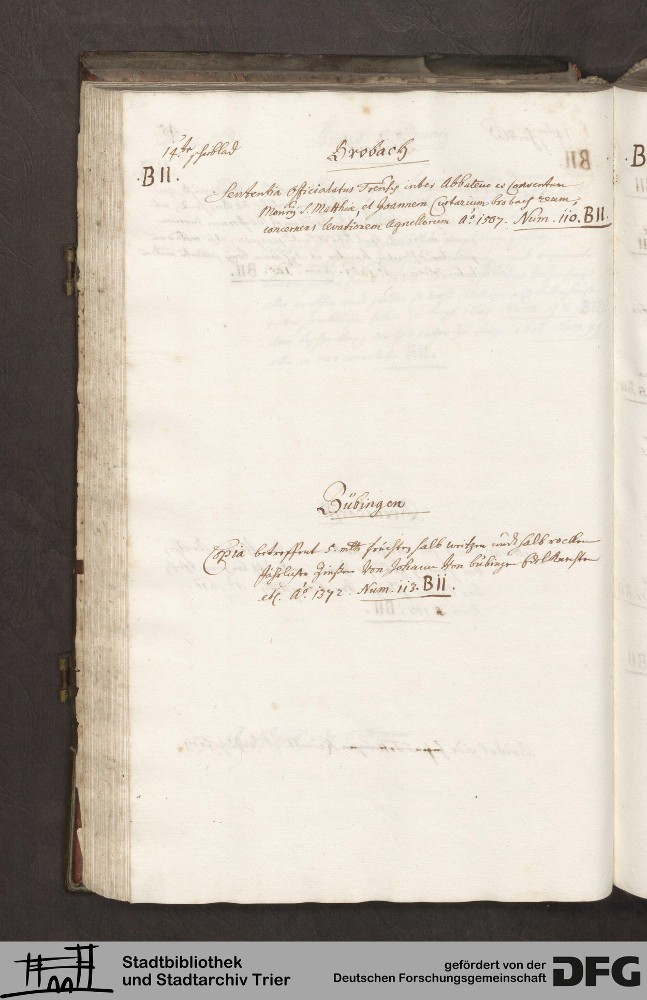 14te schublad
Brobach
.B II.
Sententia Officialatus Trevĕsis inter Abbatem et Conventum
Monrÿ S. Matthiæ, et Joannem Custarium brobach reum,
concernens levationem Agnellorum Aº. 1507. Num. 110. B II.
Bübingen
Copia betreffent 5. mltr früchten halb weitzen undt halb rocken
Jährliche Zinßen von Johann von bübinge
etc. Aº. 1372. Num. 113. B II.
Stadtbibliothek
und Stadtarchiv Trier
gefördert von der
Deutschen Forschungsgemeinschaft
DFG